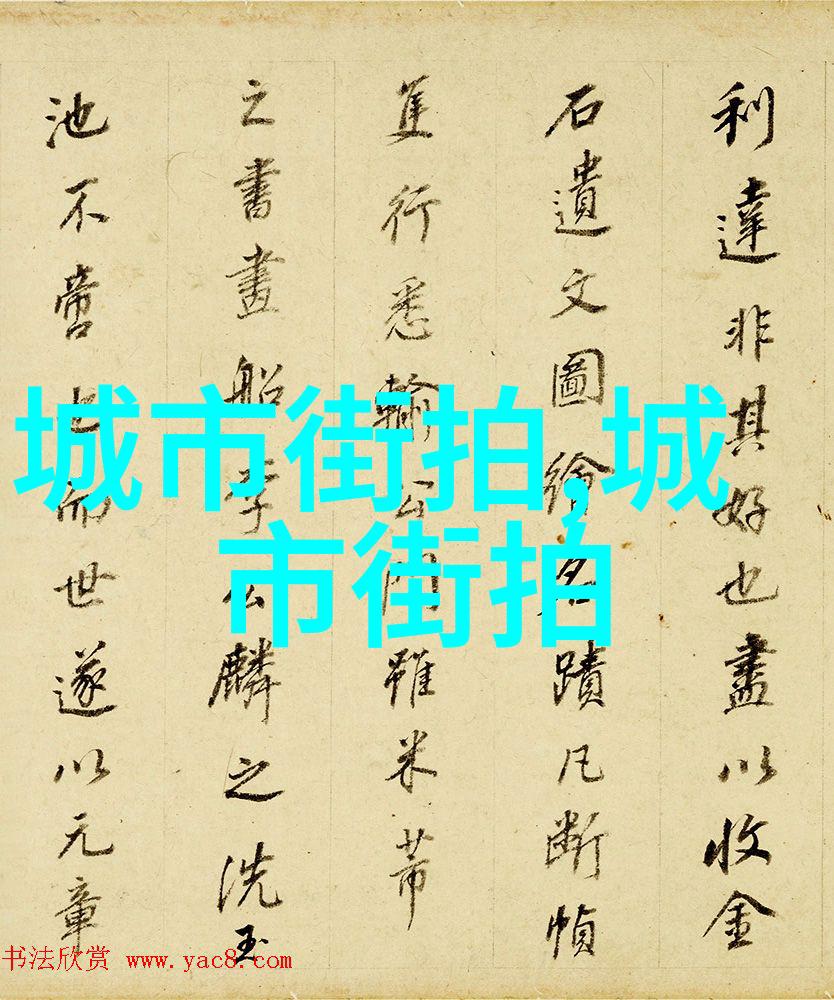 利達非其好也盡以收金
石遺文圖繪名蹟凡斷幀
隻行悉輸公門雖米芾
之書畫船李公麟之洗玉
池不啻也而世遂以元章
城市街拍,城
市街拍
书法欣赏 www.yac8.com